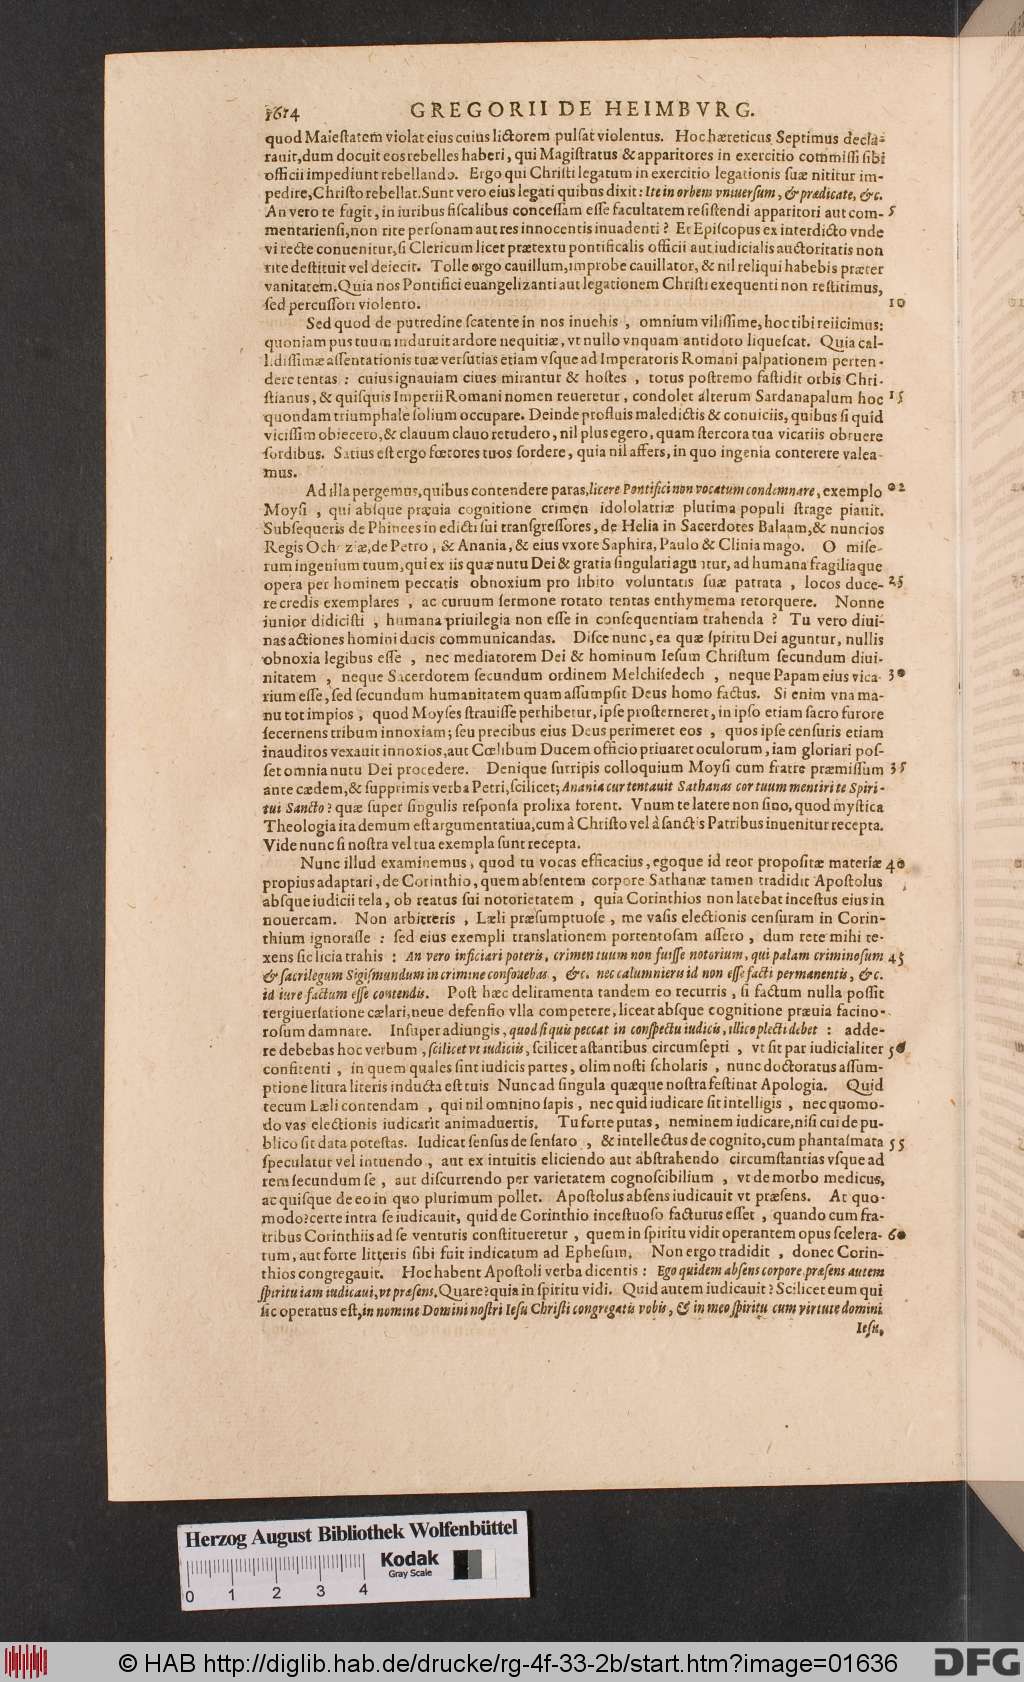 1614 GREGORII DE HEIMBVRG.
quod Maiestatem violat eius cuius lictorem pulsat violentus. Hoc hæreticus Septimus decla-
rauit, dum docuit eos rebelles haberi, qui Magistratus & apparitores in exercitio commissi sibi
officii impediunt rebellando. Ergo qui Christi legatum in exercitio legationis suæ nititur im-
pedire, Christo rebellat. Sunt vero eius legati quibus dixit: Ite in orbem vniuersum, & prædicate, &c.
An vero te fugit, in iuribus fiscalibus concessam esse facultatem resistendi apparitori aut com- 5
mentariensi, non rite personam aut res innocentis inuadenti? Et Episcopus ex interdicto vnde
vi recte conuenitur, si Clericum licet prætextu pontificalis officii aut iudicialis auctoritatis non
rite destituit vel deiecit. Tolle ergo cauillum, improbe cauillator, & nil reliqui habebis præter
vanitatem. Quia nos Pontifici euangelizanti aut legationem Christi exequenti non restitimus,
sed percussori violento. 10
Sed quod de putredine scatente in nos inuehis, omnium vilissime, hoc tibi reiicimus:
quoniam pus tuum induruit ardore nequitiæ, vt nullo vnquam antidoto liquescat. Quia cal-
lidissimæ assentationis tuæ versutias etiam vsque ad Imperatoris Romani palpationem perten-
dere tentas: cuius ignauiam ciues mirantur & hostes, totus postremo fastidit orbis Chri-
stianus, & quisquis Imperii Romani nomen reueretur, condolet alterum Sardanapalum hoc 15
quondam triumphale solium occupare. Deinde profluis maledictis & conuiciis, quibus si quid
vicissim obiecero, & clauum clauo retudero, nil plus egero, quam stercora tua vicariis obruere
sordibus. Satius est ergo fœtores tuos sordere, quia nil affers, in quo ingenia conterere valea-
mus.
Ad illa pergemus, quibus contendere paras, licere Pontifici non vocatum condemnare, exemplo 02
Moysi, qui absque præuia cognitione crimen idololatriæ plurima populi strage piauit.
Subsequeris de Phinees in edicti sui transgressores, de Helia in Sacerdotes Balaam, & nuncios
Regis Ochoziæ, de Petro, & Anania, & eius vxore Saphira, Paulo & Clinia mago. O mise-
rum ingenium tuum, qui ex iis quæ nutu Dei & gratia singulari aguntur, ad humana fragiliaque
opera per hominem peccatis obnoxium pro libito voluntatis suæ patrata, locos duce- 25
re credis exemplares, ac curuum sermone rotato tentas enthymema retorquere. Nonne
iunior didicisti, humana priuilegia non esse in consequentiam trahenda? Tu vero diui-
nas actiones homini ducis communicandas. Disce nunc, ea quæ spiritu Dei aguntur, nullis
obnoxia legibus esse, nec mediatorem Dei & hominum Iesum Christum secundum diui-
nitatem, neque Sacerdotem secundum ordinem Melchisedech, neque Papam eius vica- 30
rium esse, sed secundum humanitatem quam assumpsit Deus homo factus. Si enim vna ma-
nu tot impios, quod Moyses strauisse perhibetur, ipse prosterneret, in ipso etiam sacro furore
secernens tribum innoxiam; seu precibus eius Deus perimeret eos, quos ipse censuris etiam
inauditos vexauit innoxios, aut Cœlibum Ducem officio priuaret oculorum, iam gloriari pos-
set omnia nutu Dei procedere. Denique surripis colloquium Moysi cum fratre præmissum 35
ante cædem, & supprimis verba Petri, scilicet; Anania cur tentauit Sathanas cor tuum mentiri te Spiri-
tui Sancto? quæ super singulis responsa prolixa forent. Vnum te latere non sino, quod mystica
Theologia ita demum est argumentatiua, cum à Christo vel à sanctis Patribus inuenitur recepta.
Vide nunc si nostra vel tua exempla sunt recepta.
Nunc illud examinemus, quod tu vocas efficacius, egoque id reor propositæ materiæ 40
propius adaptari, de Corinthio, quem absentem corpore Sathanæ tamen tradidit Apostolus
absque iudicii tela, ob reatus sui notorietatem, quia Corinthios non latebat incestus eius in
nouercam. Non arbitreris, Læli præsumptuose, me vasis electionis censuram in Corin-
thium ignorasse: sed eius exempli translationem portentosam assero, dum rete mihi te-
xens sic licia trahis: An vero inficiari poteris, crimen tuum non fuisse notorium, qui palam criminosum 45
& sacrilegum Sigismundum in crimine consouebas, &c. nec calumnieris id non esse facti permanentis, &c.
id iure factum esse contendis. Post hæc deliramenta tandem eo recurris, si factum nulla possit
tergiuersatione cælari, neue defensio vlla competere, liceat absque cognitione præuia facino-
rosum damnare. Insuper adiungis, quod si quis peccat in conspectu iudicis, illico plecti debet: adde-
re debebas hoc verbum, scilicet vt iudiciis, scilicet astantibus circumsepti, vt sit par iudicialiter 50
confitenti, in quem quales sint iudicis partes, olim nosti scholaris, nunc doctoratus assum-
ptione litura literis inducta est tuis Nunc ad singula quæque nostra festinat Apologia. Quid
tecum Læli contendam, qui nil omnino sapis, nec quid iudicare sit intelligis, nec quomo-
do vas electionis iudicarit animaduertis. Tu forte putas, neminem iudicare, nisi cui de pu-
blico sit data potestas. Iudicat sensus de sensato, & intellectus de cognito, cum phantasmata 55
speculatur vel intuendo, aut ex intuitis eliciendo aut abstrahendo circumstantias vsque ad
rem secundum se, aut discurrendo per varietatem cognoscibilium, vt de morbo medicus,
ac quisque de eo in quo plurimum pollet. Apostolus absens iudicauit vt præsens. At quo-
modo? certe intra se iudicauit, quid de Corinthio incestuoso facturus esset, quando cum fra-
tribus Corinthiis ad se venturis constitueretur, quem in spiritu vidit operantem opus scelera- 60
tum, aut forte litteris sibi fuit indicatum ad Ephesum. Non ergo tradidit, donec Corin-
thios congregauit. Hoc habent Apostoli verba dicentis: Ego quidem absens corpore, præsens autem
spiritu iam iudicaui, vt præsens, Quare? quia in spiritu vidi. Quid autem iudicauit? Scilicet eum qui
sic operatus est, in nomine Domini nostri Iesu Christi congregatis vobis, & in meo spiritu cum virtute domini
Iesu,
Herzog August Bibliothek Wolfenbüttel
Kodak
Gray Scale
0 1 2 3 4
© HAB http://diglib.hab.de/drucke/rg-4f-33-2b/start.htm?image=01636
DFG